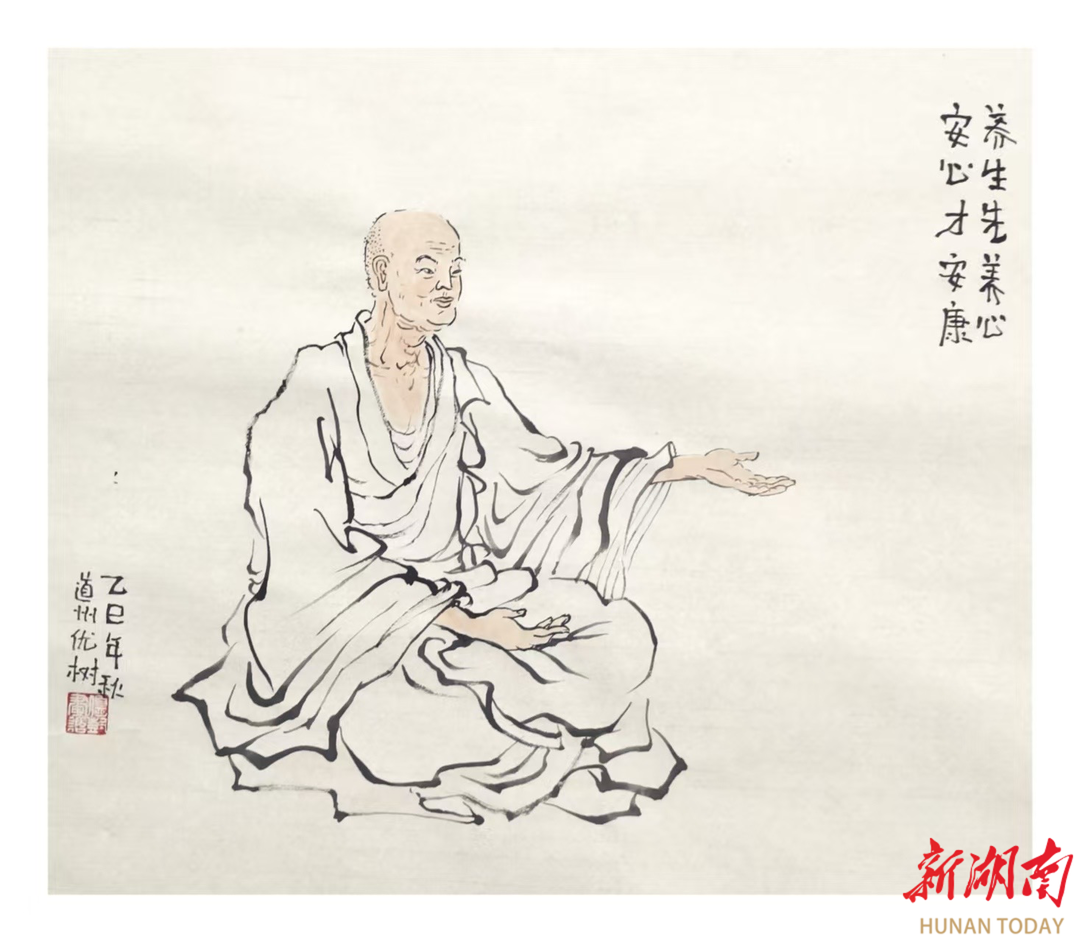 养生先养心
安心才安康
乙巳年秋
道州优树
新湖南
HUNAN TODAY